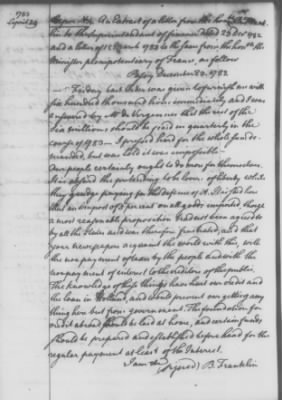 1783
April 29
An Extract of a letter from the hon Frank
lin to the Superintendant of finance dated 23 Decr 1782
and a letter of 15 March 1783 to the same from the honble the
Minister plenipotentiary of France, as follow
Passy December 23. 1782
Friday last Order was given to furnish me with
six hundred thousand livres immediately and I was
informed by Mr de Vergennes that the rest of the
Six millions should be paid us quarterly in the
course of 1783 — I pressed hard for the whole sum de-
manded, but was told it was impossible —
Our people certainly ought to do more for themselves.
It is absurd the pretending to be lovers of liberty while
they grudge paying for the defence of it. It is said here
that an impost of 5 per cent on all goods imported though
a most reasonable proposition had not been agreed to
by all the States and was therefore frustrated, and that
your newspapers acquaint the world with this, with
the non payment of taxes by the people and with the
nonpayment of interest to the creditors of the public.
The knowledge of these things have hurt our credit and
the loan in Holland, and would prevent our getting any
thing here but from government. The foundation for
credit abroad should be laid at home, and certain funds
should be prepared and established before hand for the
regular payment at least of the Interest.
I am
(signed) B. Franklin